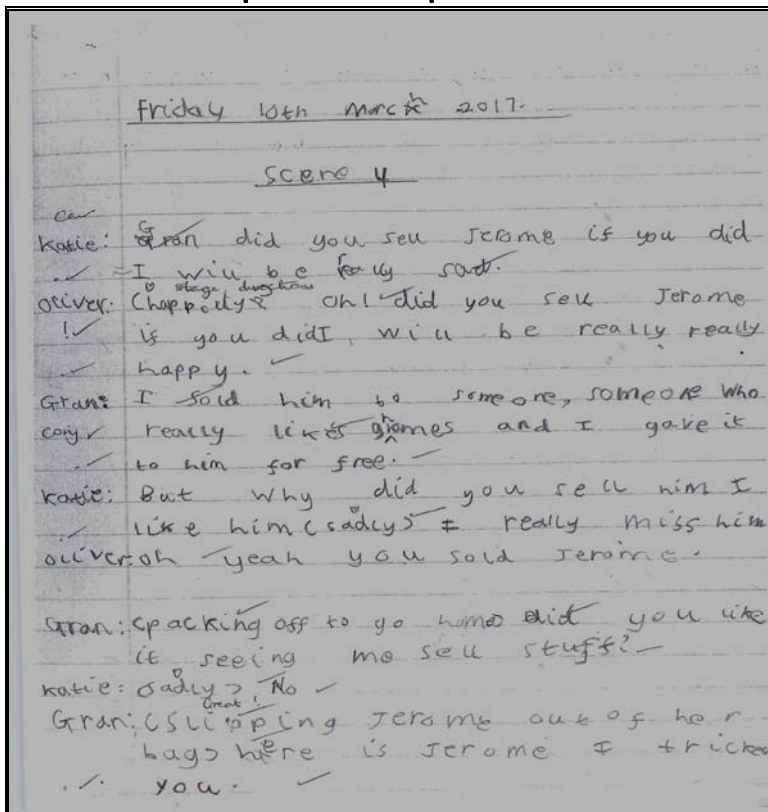 Friday 10th March 2017.
Scene 4
Katie: Gran did you sell Jerome if you did
I will be really sad.
stage directions
Oliver: (happily) oh! did you sell Jerome
if you did I will be really really
happy.
Gran: I sold him to someone, someone who
really likes gnomes and I gave it
to him for free.
Katie: But why did you sell him I
like him (sadly) I really miss him
Oliver: oh yeah you sold Jerome.
Gran: (packing off to go home) did you like
it seeing me sell stuff?
Katie: (sadly) No
Great!
Gran: (Slipping Jerome out of her
bag) here is Jerome I tricked
you.